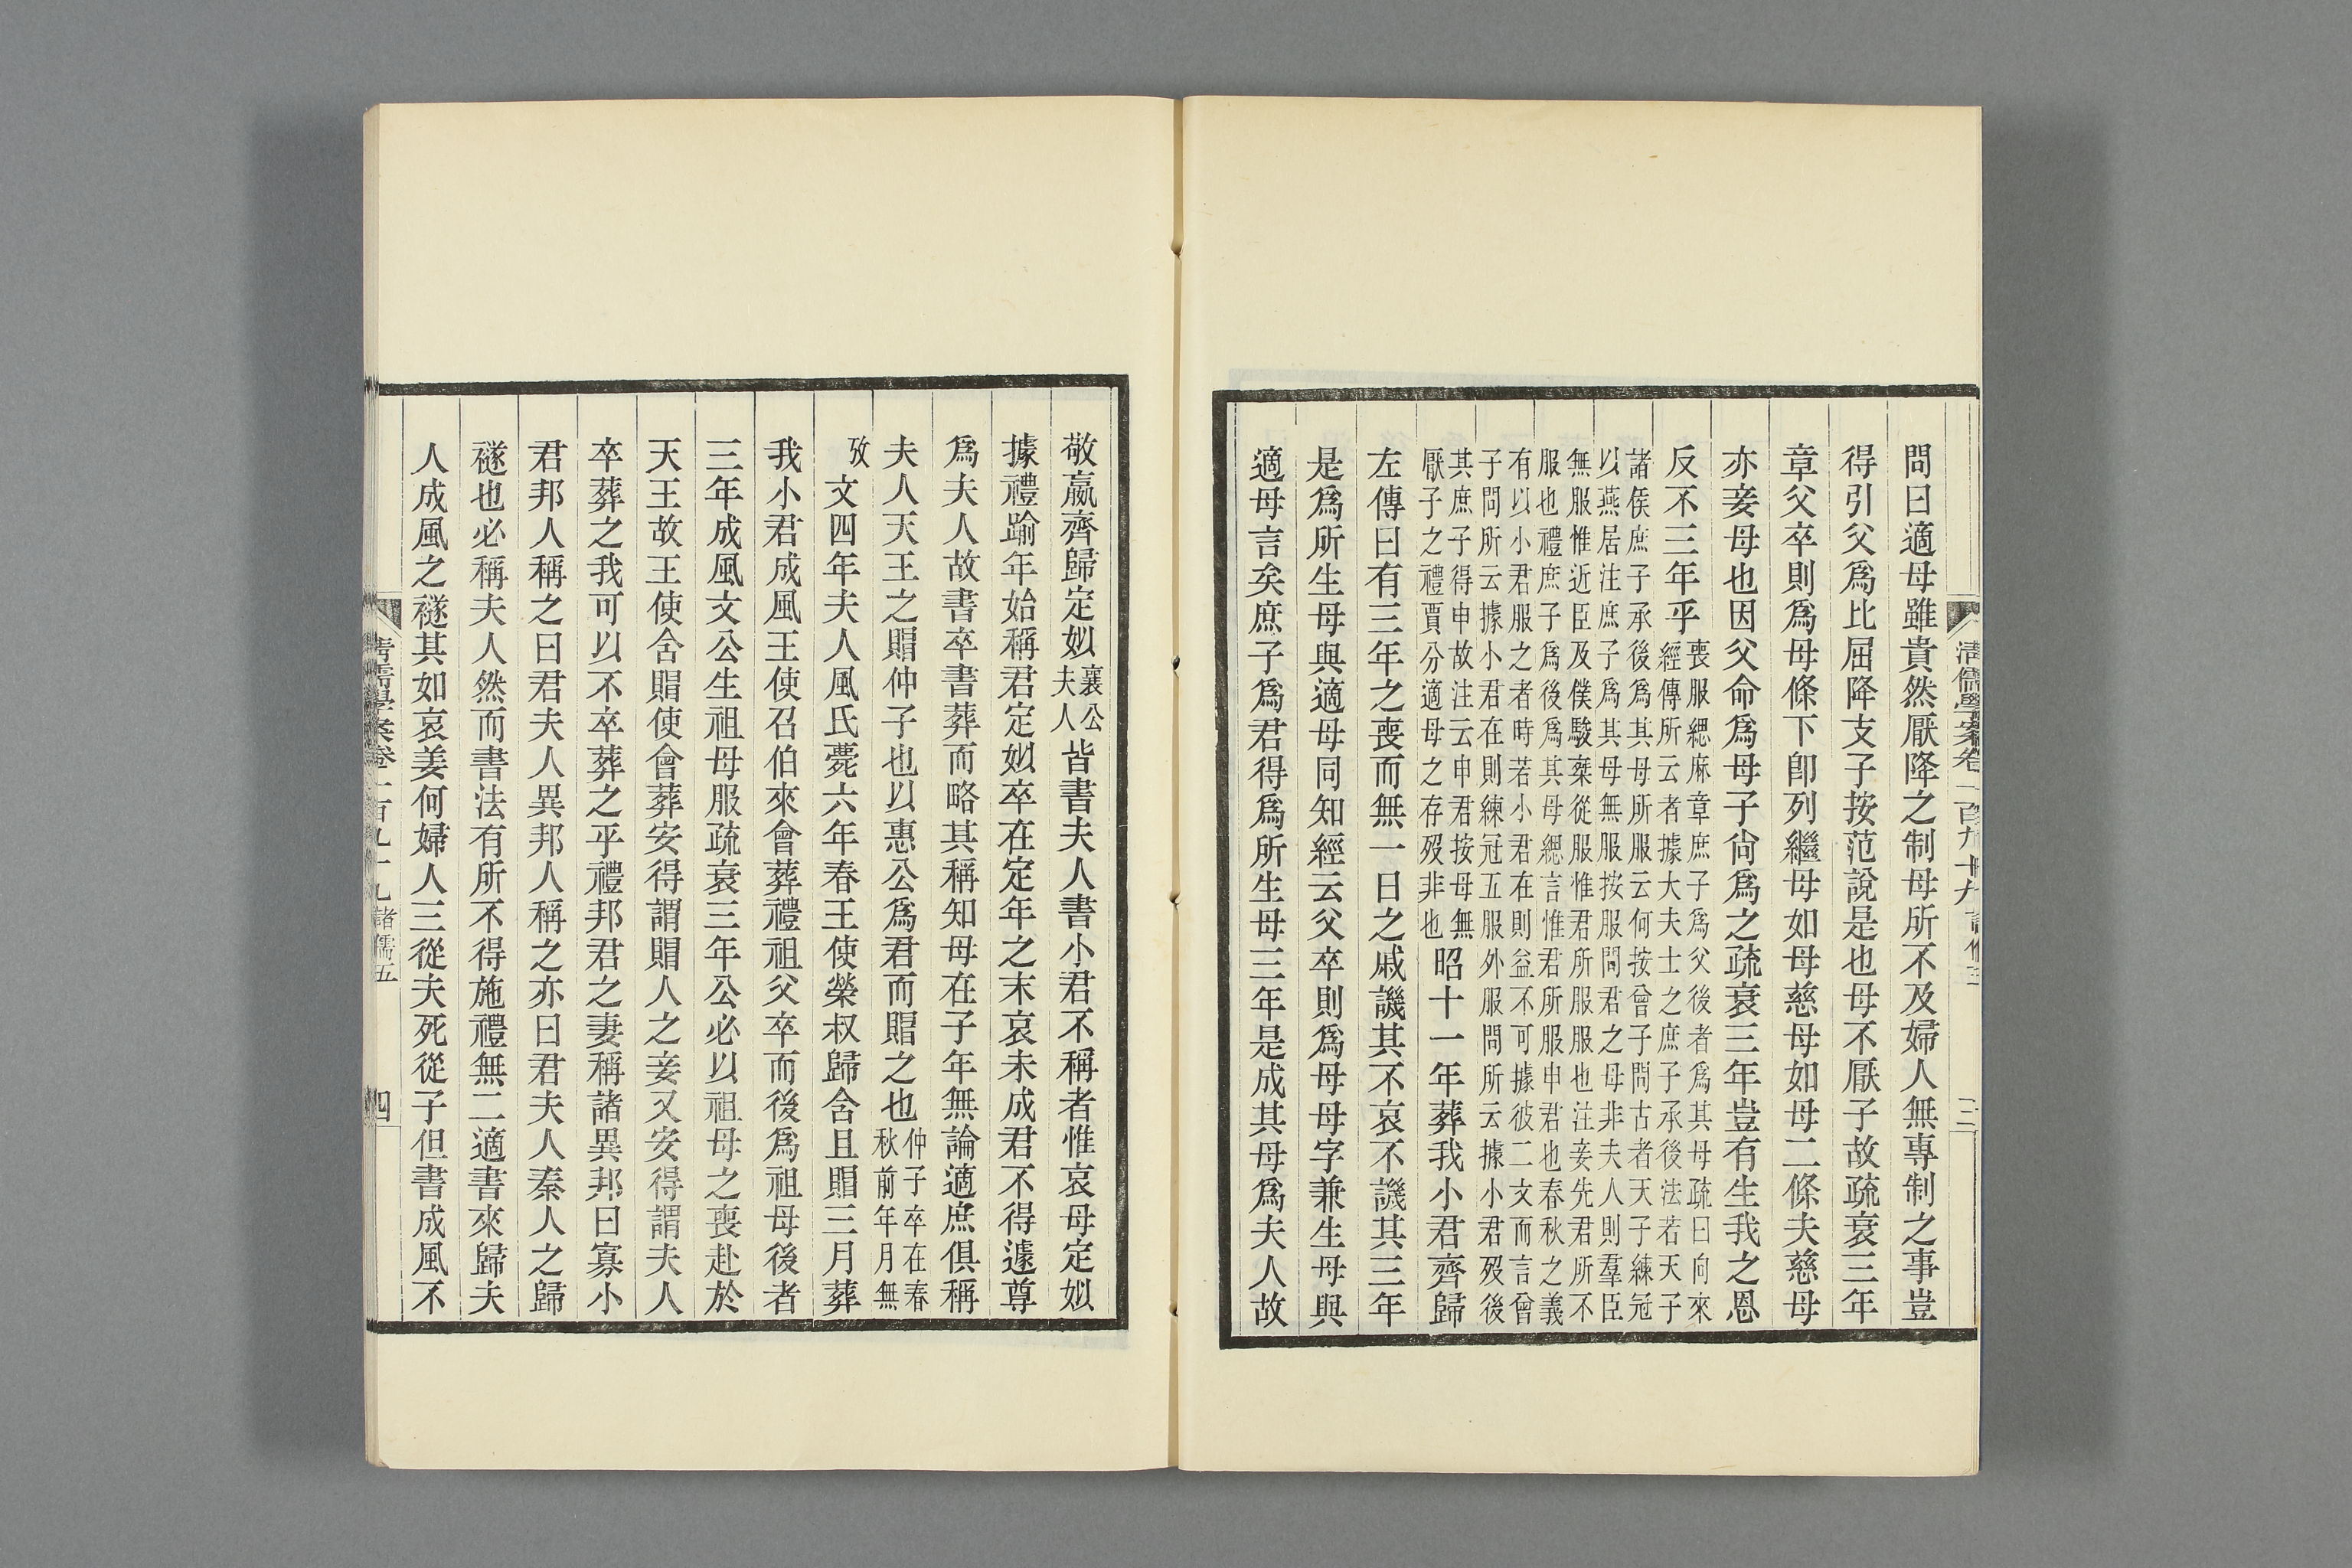 清儒學案卷一百九十九 諸儒五 三
問曰適母雖貴然厭降之制母所不及婦人無專制之事豈
得引父爲比屈降支子按范說是也母不厭子故疏衰三年
章父卒則爲母條下卽列繼母如母慈母如母二條夫慈母
亦妾母也因父命爲母子尙爲之疏衰三年豈有生我之恩
反不三年乎
喪服緦麻章庶子爲父後者爲其母疏曰向來
經傳所云者據大夫士之庶子承後法若天子
諸侯庶子承後爲其母所服云何按曾子問古者天子練冠
以燕居注庶子爲其母無服按服問君之母非夫人則羣臣
無服惟近臣及僕驂椉從服惟君所服服也注妾先君所不
服也禮庶子爲後爲其母緦言惟君所服申君也春秋之義
有以小君服之者時若小君在則益不可據彼二文而言曾
子問所云據小君在則練冠五服外服問所云據小君歿後
其庶子得申故注云申君按母無
厭子之禮賈分適母之存歿非也
昭十一年葬我小君齊歸
左傳曰有三年之喪而無一日之慼譏其不哀不譏其三年
是爲所生母與適母同知經云父卒則爲母母字兼生母與
適母言矣庶子爲君得爲所生母三年是成其母爲夫人故
敬嬴齊歸定姒
襄公
夫人
皆書夫人書小君不稱者惟哀母定姒
據禮踰年始稱君定姒卒在定年之末哀未成君不得遽尊
爲夫人故書卒書葬而略其稱知母在子年無論適庶俱稱
夫人天王之賵仲子也以惠公爲君而賵之也
仲子卒在春
秋前年月無
攷
文四年夫人風氏薨六年春王使榮叔歸含且賵三月葬
我小君成風王使召伯來會葬禮祖父卒而後爲祖母後者
三年成風文公生祖母服疏衰三年公必以祖母之喪赴於
天王故王使含賵使會葬安得謂賵人之妾又安得謂夫人
卒葬之我可以不卒葬之乎禮邦君之妻稱諸異邦曰寡小
君邦人稱之曰君夫人異邦人稱之亦曰君夫人秦人之歸
襚也必稱夫人然而書法有所不得施禮無二適書來歸夫
人成風之襚其如哀姜何婦人三從夫死從子但書成風不
清儒學案卷一百九十九 諸儒五 四